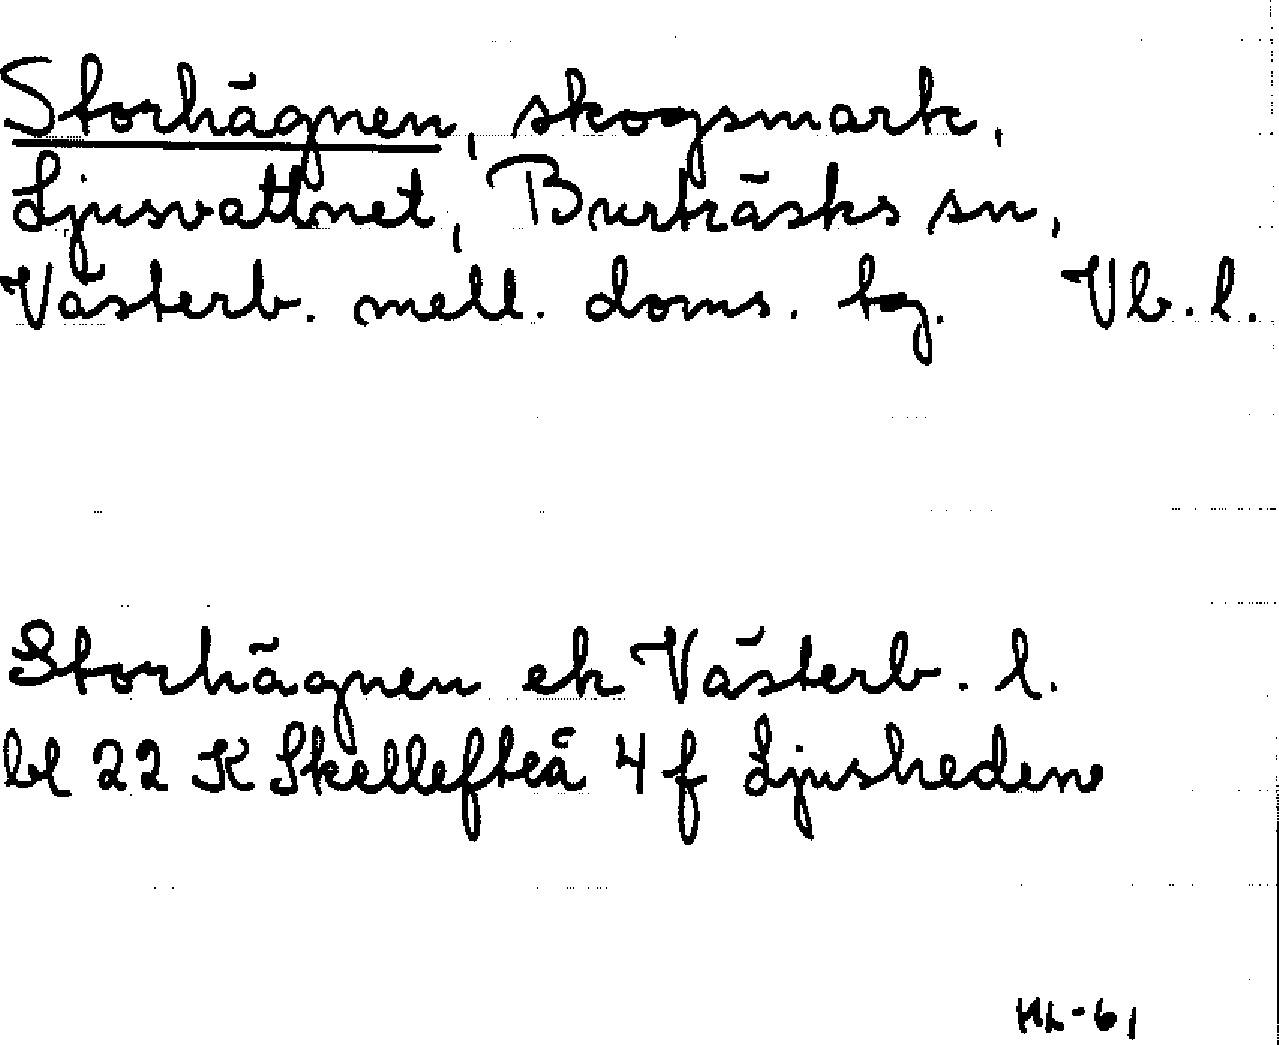 Storhägnen, skogsmark,
Ljusvattnet, Burträsks sn,
Västerb. mell. doms. tg. Vb. l.
Storhägnen ek Västerb. l.
bl 22 K Skellefteå 4 f Ljusheden
HL-61